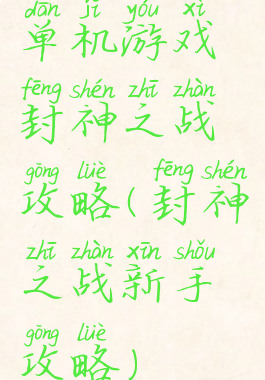 dān jī yóu xì
单机游戏
fēng shén zhī zhàn
封神之战
gōng lüè fēng shén
攻略(封神
zhī zhàn xīn shǒu
之战新手
gōng lüè
攻略)